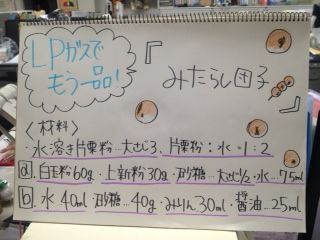 LPガスで
もう一品!
『
みたらし団子
』
〈材料〉
・水溶き片栗粉…大さじ3、片栗粉:水・1:2
ⓐ.白玉粉60g・上新粉30g・砂糖…大さじ1/2・水…75ml
ⓑ.水 40ml・砂糖…40g・みりん30ml・醤油…25ml